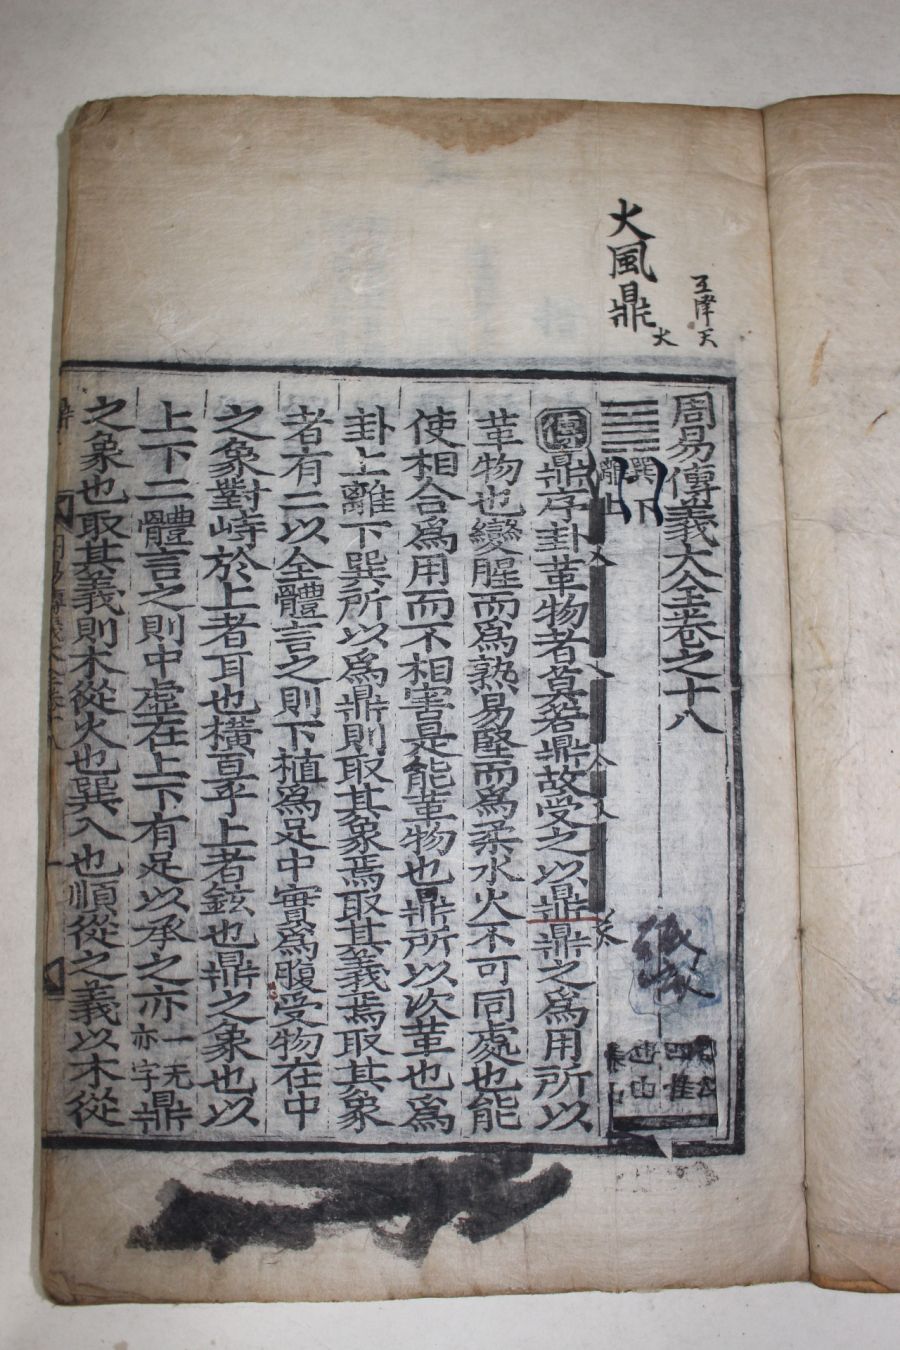 火風鼎
周易傳義大全卷之十八
巽下
離上
傳鼎序卦革物者莫若鼎故受之以鼎鼎之爲用所以
革物也變腥而爲熟易堅而爲柔水火不可同處也能
使相合爲用而不相害是能革物也鼎所以次革也爲
卦上離下巽所以爲鼎則取其象焉取其義焉取其象
者有二以全體言之則下植爲足中實爲腹受物在中
之象對峙於上者耳也橫亘乎上者鉉也鼎之象也以
上下二體言之則中虛在上下有足以承之亦一无亦字鼎
之象也取其義則木從火也巽入也順從之義以木從